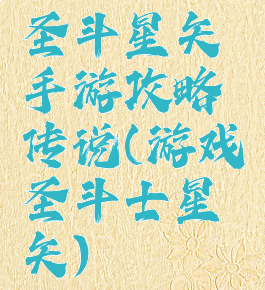 圣斗星矢
手游攻略
传说(游戏
圣斗士星
矢)